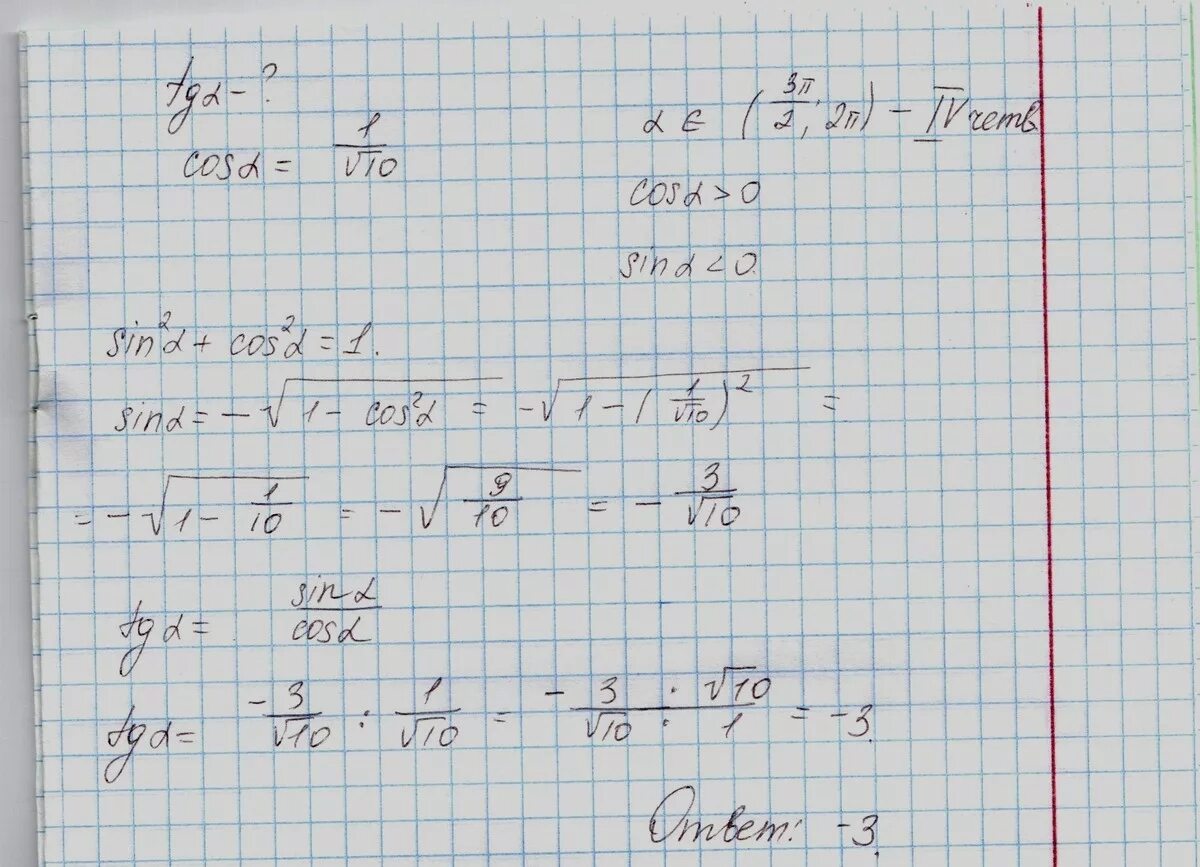 tgα - ?
cosα = 1/√10
α ∈ (3π/2; 2π) - IV четв
cosα > 0
sinα < 0.
sin²α + cos²α = 1.
sinα = -√(1 - cos²α) = -√(1 - (1/√10)²) =
= -√(1 - 1/10) = -√(9/10) = - 3/√10
tgα = sinα/cosα
tgα = -3/√10 : 1/√10 = - (3 · √10)/(√10 · 1) = -3.
Ответ: -3.